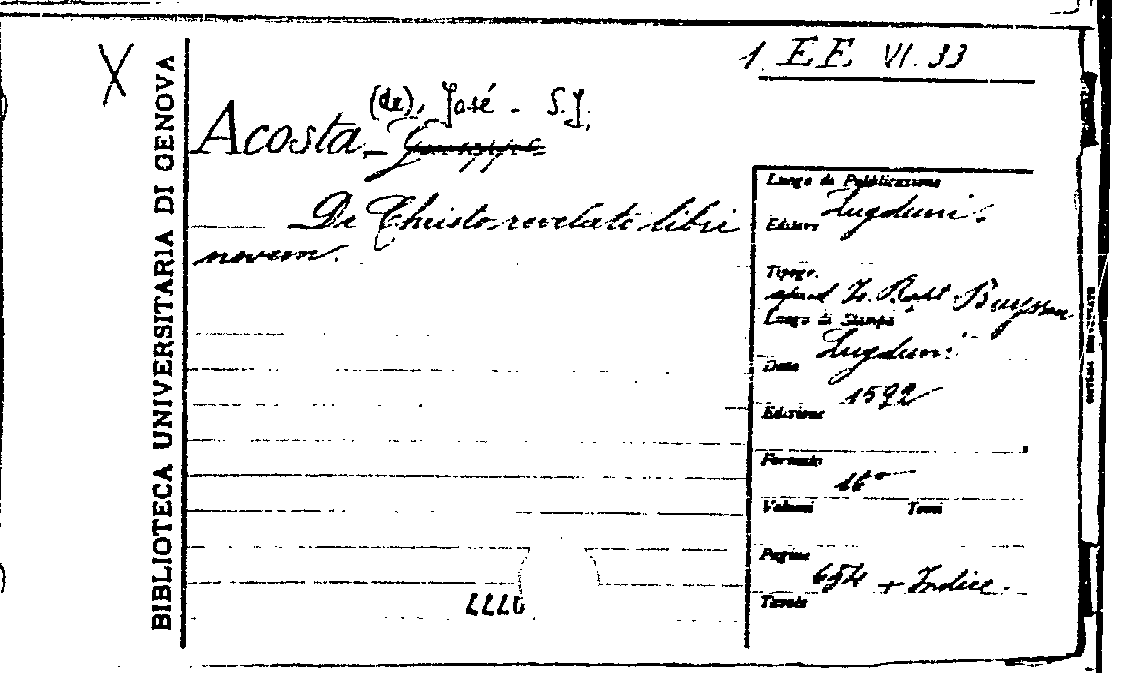 X
BIBLIOTECA UNIVERSITARIA DI GENOVA
1. EE VI. 33
(de), José - S.J.
Acosta - Giuseppe
De Christo revelato libri
novem.
Luogo di Pubblicazione
Lugduni.
Editore
Tipogr.
apud Io. Bapt Buysson
Luogo di Stampa
Lugduni
Data
1592
Edizione
Formato
16°
Volumi Tomi
Pagine
654 + Indice.
Tavole